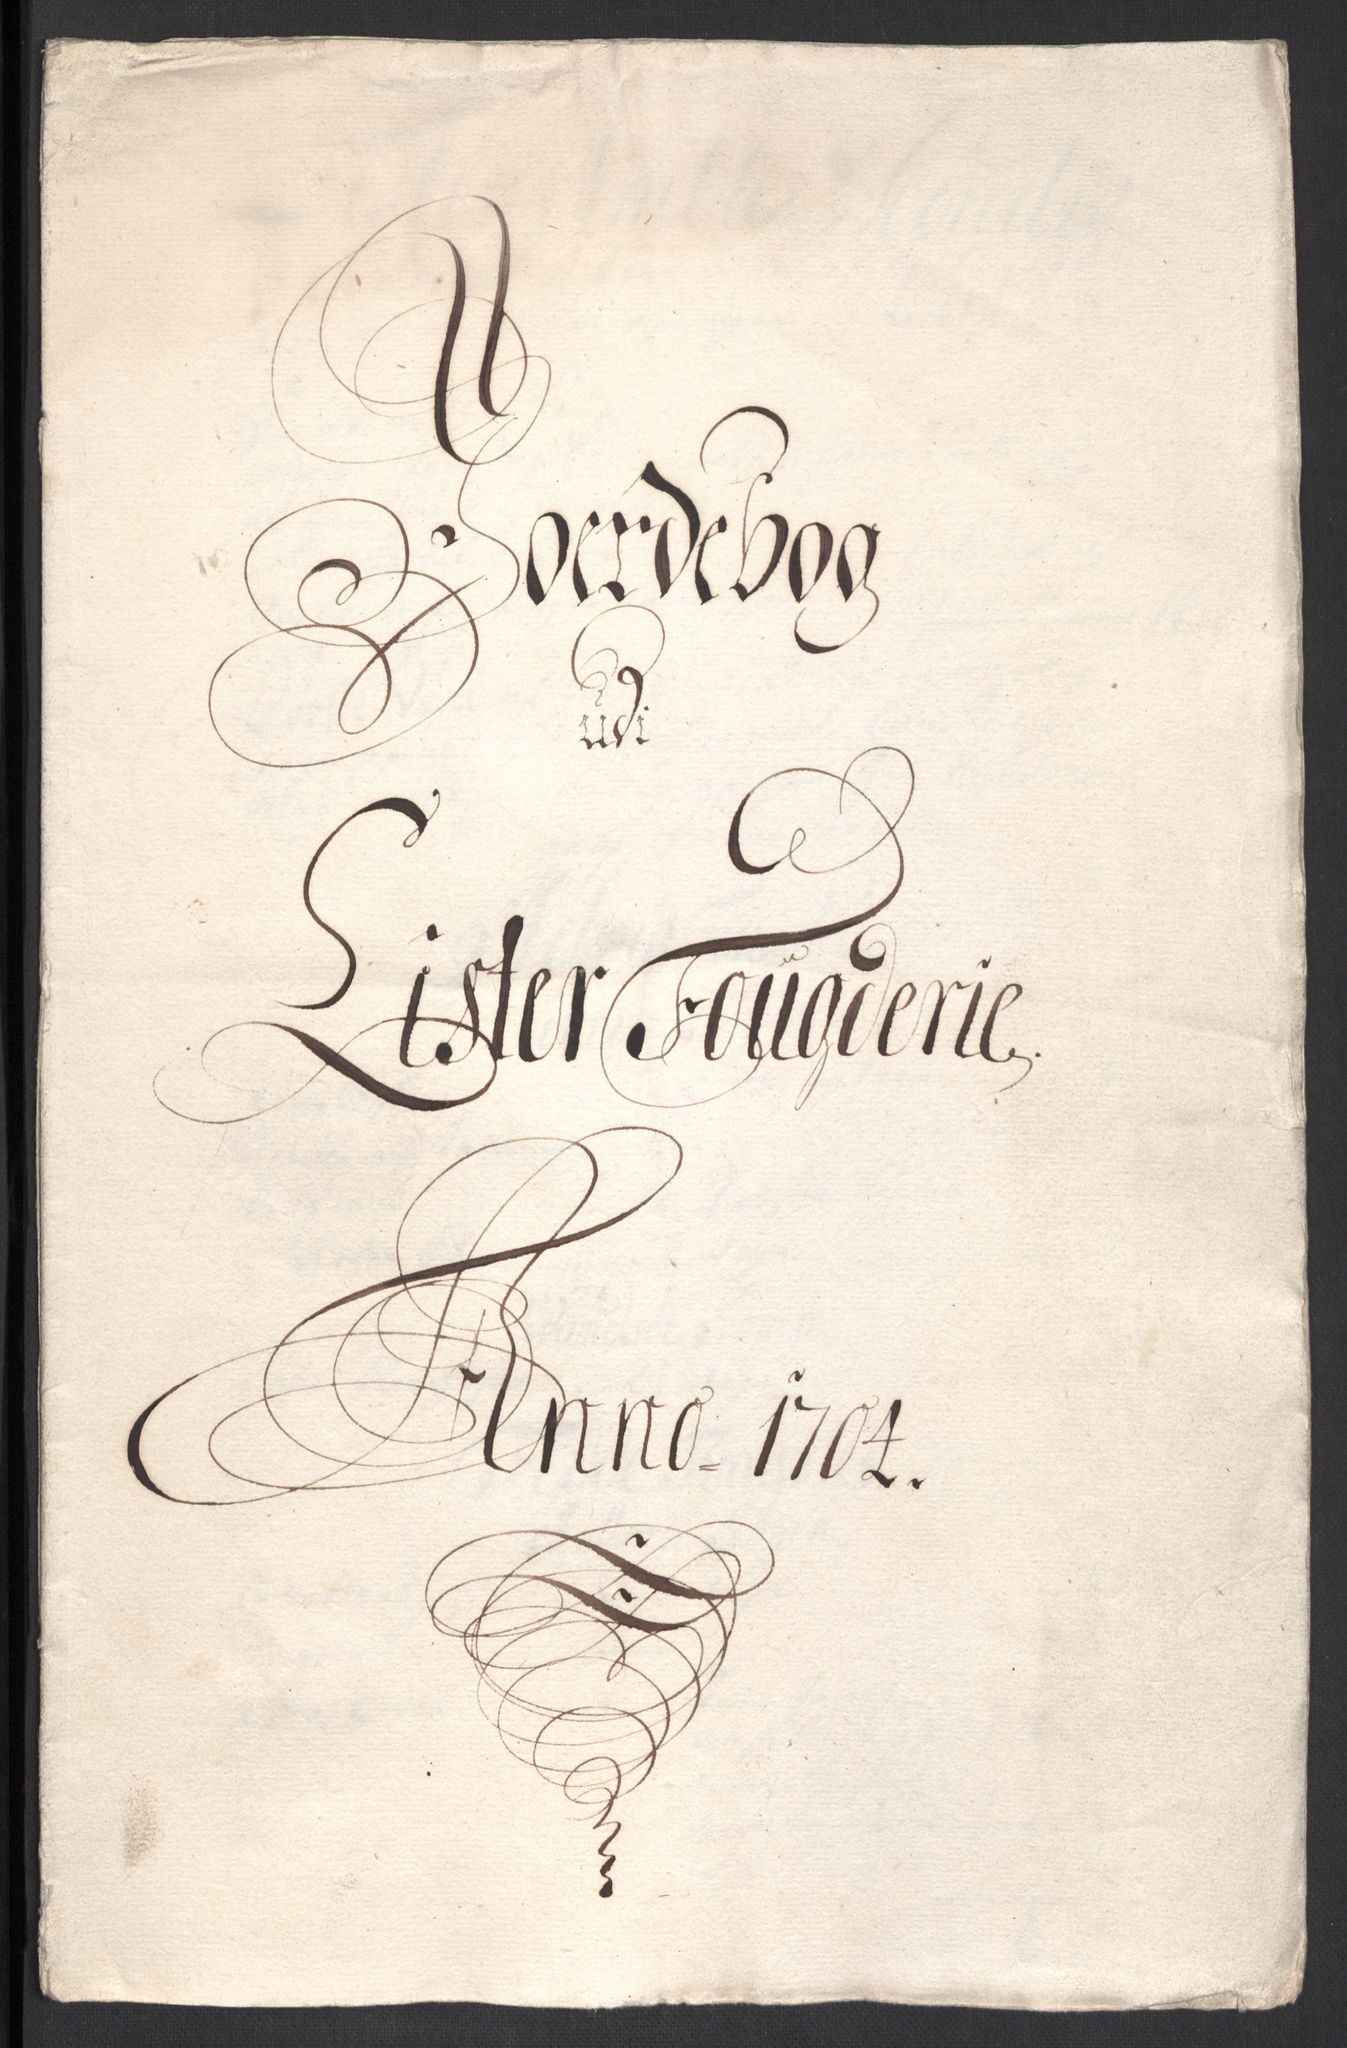 Joerdebog
udi
Lister Fougderie.
Anno 1704.